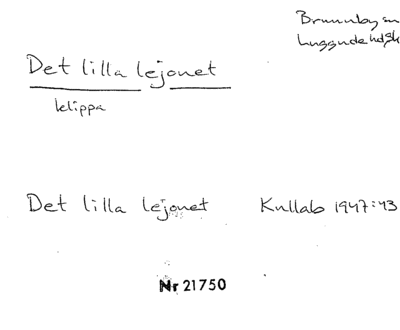 Brunnby sn
Luggude hdsk
Det lilla lejonet
klippa
Det lilla lejonet Kullab 1947:43
Nr 21750